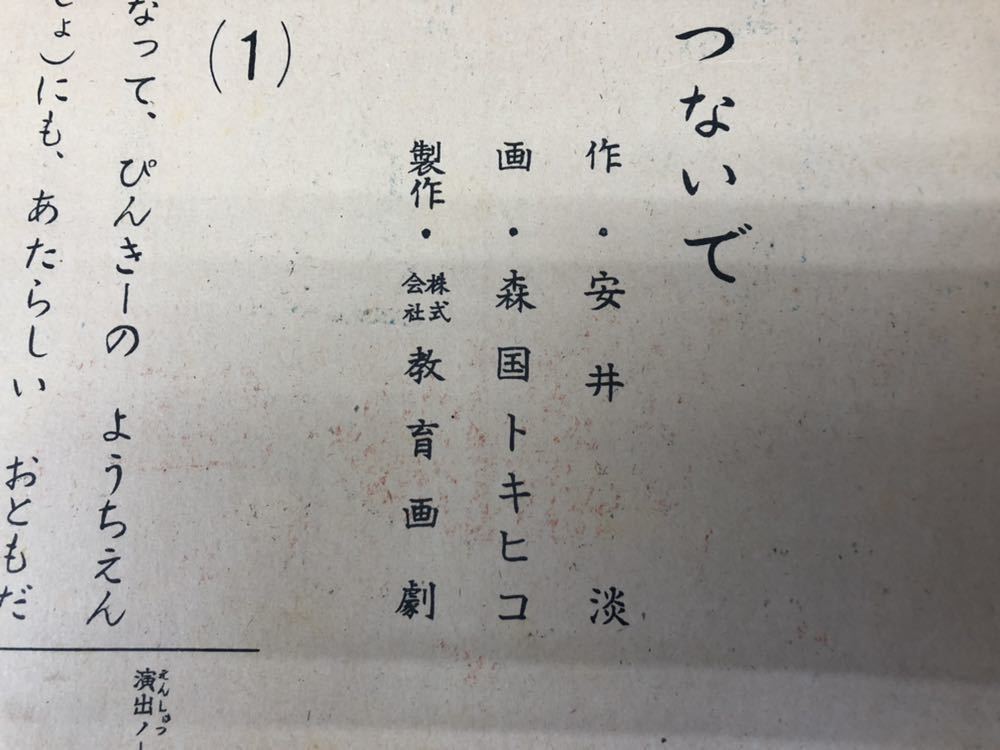 つないで
作・安井 淡
画・森国トキヒコ
製作・株式会社教育画劇
(1)
なって、ぴんきーの ようちえん
しょ)にも、あたらしい おともだ
えんしゅつ
演出ノー